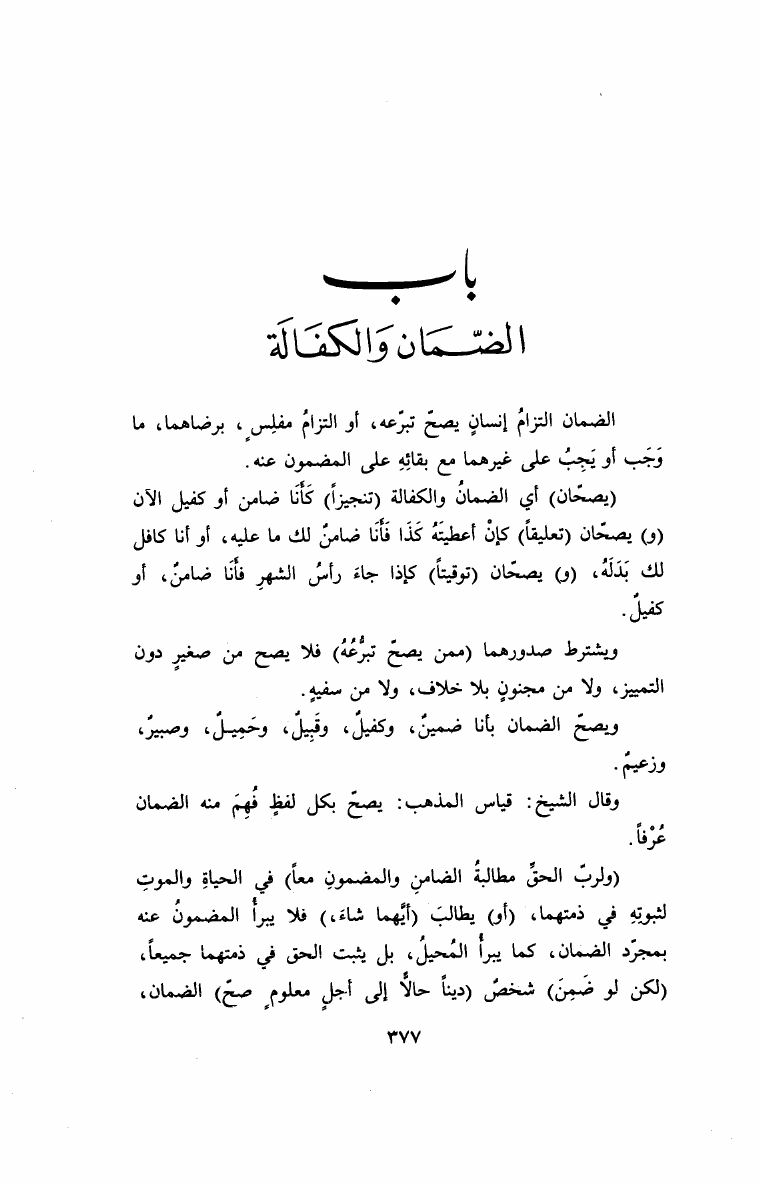 باب
الضّمَان وَالكفَالَة
الضمان التزامُ إنسانٍ يصحّ تبرّعه، أو التزامُ مفلِسٍ، برضاهما، ما
وَجَب أو يَجِبُ على غيرهما مع بقائِهِ على المضمون عنه.
(يصحّان) أي الضمانُ والكفالة (تنجيزاً) كَأَنَا ضامن أو كفيل الآن
(و) يصحّان (تعليقاً) كإنْ أعطيتَهُ كَذَا فَأَنَا ضامنٌ لك ما عليه، أو أنا كافل
لك بَدَلَهُ، (و) يصحّان (توقيتاً) كإذا جاءَ رأسُ الشهرِ فأَنَا ضامنٌ، أو
كفيلٌ.
ويشترط صدورهما (ممن يصحّ تبرُّعُهُ) فلا يصح من صغيرٍ دون
التمييز، ولا من مجنونٍ بلا خلاف، ولا من سفيهٍ.
ويصحّ الضمان بأنا ضمينٌ، وكفيلٌ، وقَبِيلٌ، وحَمِيلٌ، وصبيرٌ،
وزعيمٌ.
وقال الشيخ: قياس المذهب: يصحّ بكل لفظٍ فُهِمَ منه الضمان
عُرْفاً.
(ولربّ الحقِّ مطالبةُ الضامنِ والمضمونِ معاً) في الحياةِ والموتِ
لثبوتِهِ في ذمتهما، (أو) يطالبَ (أيَّهما شاءَ،) فلا يبرأُ المضمونُ عنه
بمجرّد الضمان، كما يبرأُ المُحيلُ، بل يثبت الحق في ذمتهما جميعاً،
(لكن لو ضَمِنَ) شخصٌ (ديناً حالاًّ إلى أجلٍ معلومٍ صحّ) الضمان،
٣٧٧